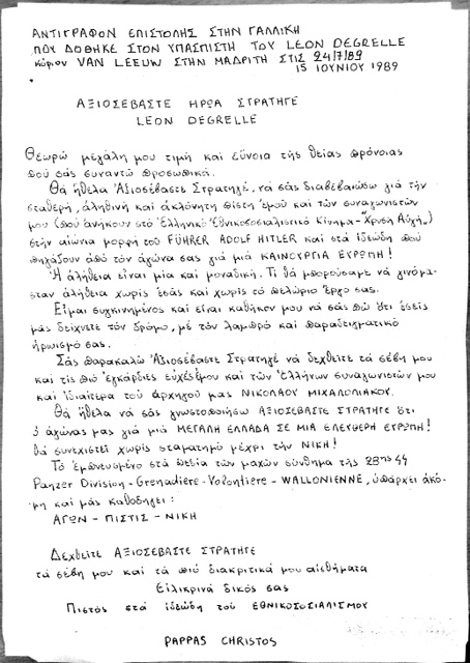 ΑΝΤΙΓΡΑΦΟΝ ΕΠΙΣΤΟΛΗΣ ΣΤΗΝ ΓΑΛΛΙΚΗ
ΠΟΥ ΔΟΘΗΚΕ ΣΤΟΝ ΥΠΑΣΠΙΣΤΗ ΤΟΥ LEON DEGRELLE
κύριον VAN LEEUW ΣΤΗΝ ΜΑΔΡΙΤΗ ΣΤΙΣ 24/7/89
15 ΙΟΥΝΙΟΥ 1989
ΑΞΙΟΣΕΒΑΣΤΕ ΗΡΩΑ ΣΤΡΑΤΗΓΕ
LEON DEGRELLE
Θεωρώ μεγάλη μου τιμή και εύνοια τής θείας πρόνοιας
πού σάς συναντώ προσωπικά.
Θά ήθελα Ἀξιοσέβαστε Στρατηγέ, νά σάς διαβεβαιώσω γιά τήν
σταθερή, ἀληθινή και ἀκλόνητη πίστη ἐμού και τών συναγωνιστών
μου (πού ἀνήκουν στό Ἑλληνικό Ἐθνικοσοσιαλιστικό Κίνημα-"Χρυσή Αὐγή")
στήν αἰώνια μορφή τού FÜHRER ADOLF HITLER και στά ἰδεώδη πού
πηγάζουν ἀπό τόν ἀγώνα σας γιά μιά ΚΑΙΝΟΥΡΓΙΑ ΕΥΡΩΠΗ!
Ἡ ἀλήθεια εἶναι μία και μοναδική. Τί θά μπορούσαμε νά γινόμα-
σταν ἀλήθεια χωρίς ἐσάς και χωρίς τό πελώριο ἔργο σας.
Εἶμαι συγκινημένος και εἶναι καθήκον μου νά σάς πώ ὅτι ἐσείς
μάς δείχνετε τόν δρόμο, μέ τόν λαμπρό και παραδειγματικό
ἡρωισμό σας.
Σάς παρακαλώ Ἀξιοσέβαστε Στρατηγέ νά δεχθείτε τά σέβη μου
και τίς πιό ἐγκάρδιες εὐχές ἐμού και τών Ἑλλήνων συναγωνιστών μου
και ἰδιαίτερα τού ἀρχηγού μας ΝΙΚΟΛΑΟΥ ΜΙΧΑΛΟΛΙΑΚΟΥ.
Θά ἤθελα νά σάς γνωστοποιήσω ΑΞΙΟΣΕΒΑΣΤΕ ΣΤΡΑΤΗΓΕ ὅτι
ὁ ἀγώνας μας γιά μιά ΜΕΓΑΛΗ ΕΛΛΑΔΑ ΣΕ ΜΙΑ ΕΛΕΥΘΕΡΗ ΕΥΡΩΠΗ!
θά συνεχιστεί χωρίς σταματημό μέχρι τήν ΝΙΚΗ!
Τό ἐμπνευσμένο στά πεδία τών μαχών σύνθημα τής 28ης SS
Panzer Division-Grenadiere-Volontiere-WALLONIENNE, ὑπάρχει ἀκό-
μη και μάς καθοδηγεί:
ΑΓΩΝ - ΠΙΣΤΙΣ - ΝΙΚΗ
Δεχθείτε ΑΞΙΟΣΕΒΑΣΤΕ ΣΤΡΑΤΗΓΕ
τά σέβη μου και τά πιό διακριτικά μου αἰσθήματα
Εἰλικρινά δικός σας
Πιστός στά ἰδεώδη τού ΕΘΝΙΚΟΣΟΣΙΑΛΙΣΜΟΥ
PAPPAS CHRISTOS